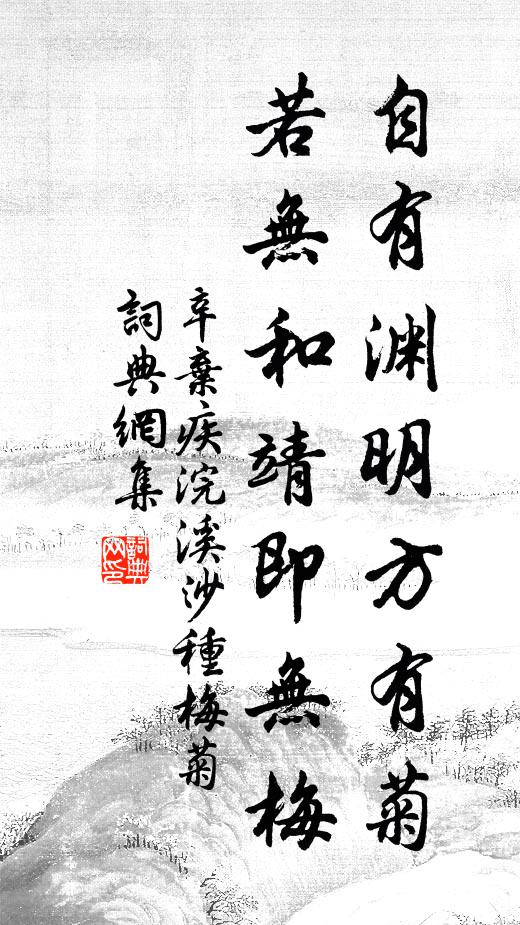 自有渊明方有菊
若無和靖即無梅
辛棄疾浣溪沙種梅菊
詞典網集
詞典網印